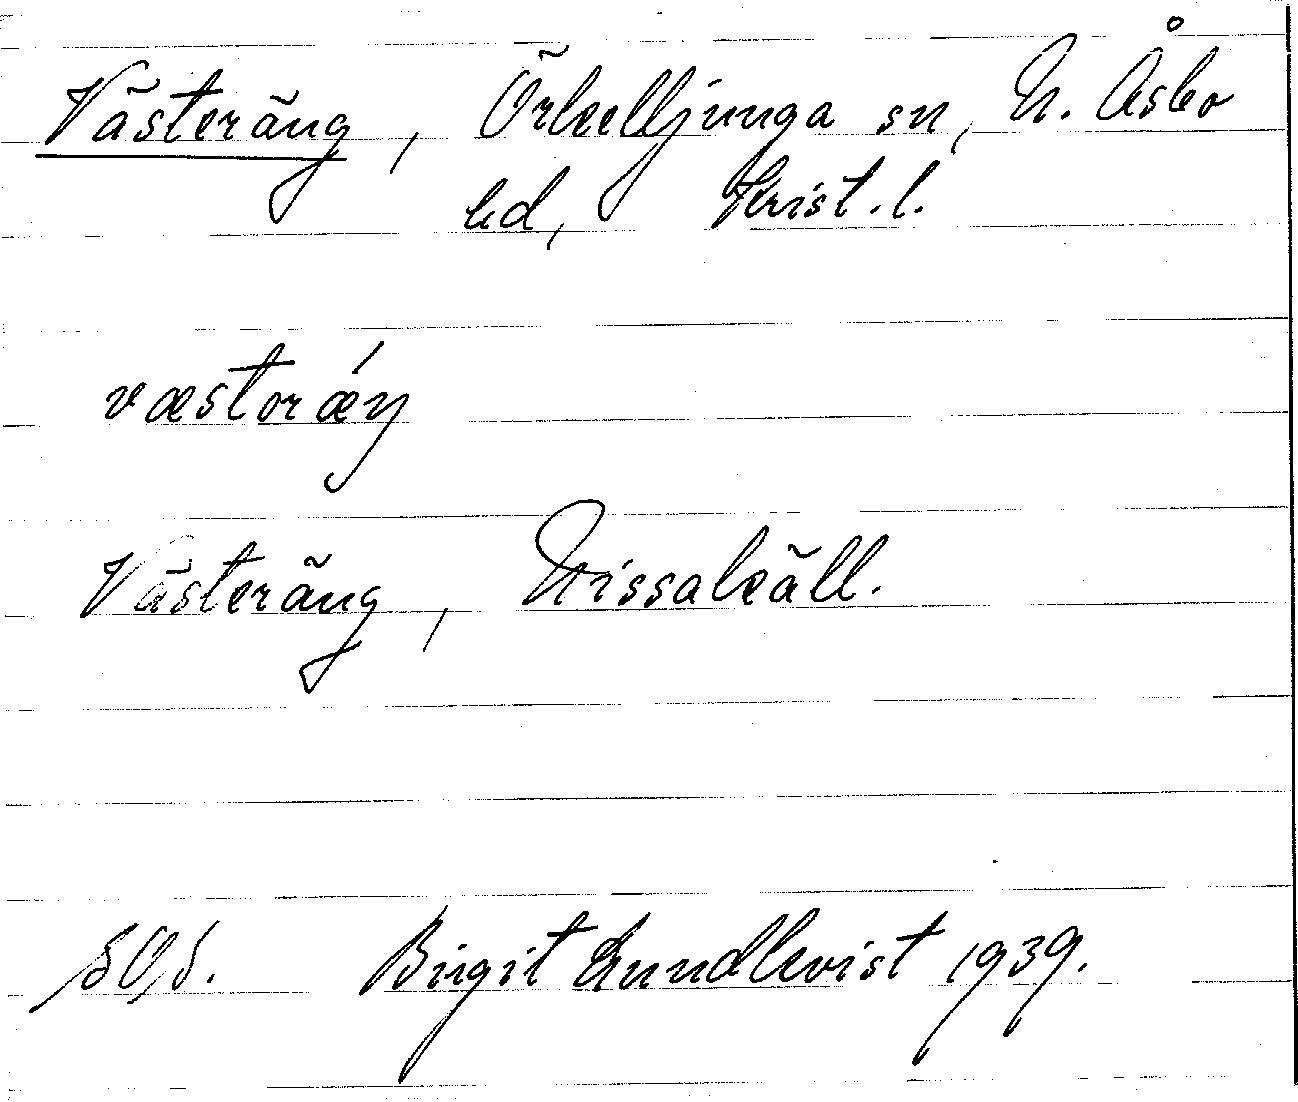 Västeräng, Örkelljunga sn, N. Åsbo
hd, Krist. l.
væstərǽŋ
Västeräng, Nissakäll.
Birgit Lundkvist 1939.